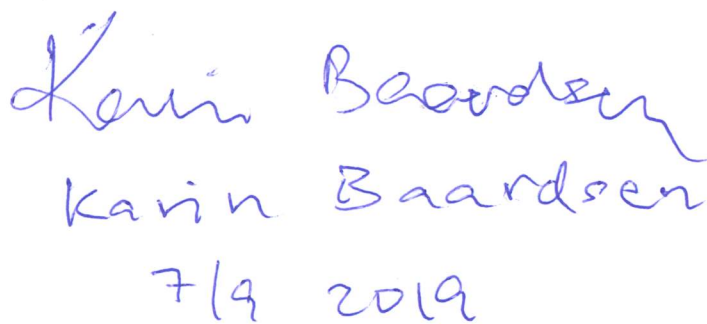 Karin Baardsen
Karin Baardsen
7/9 2019